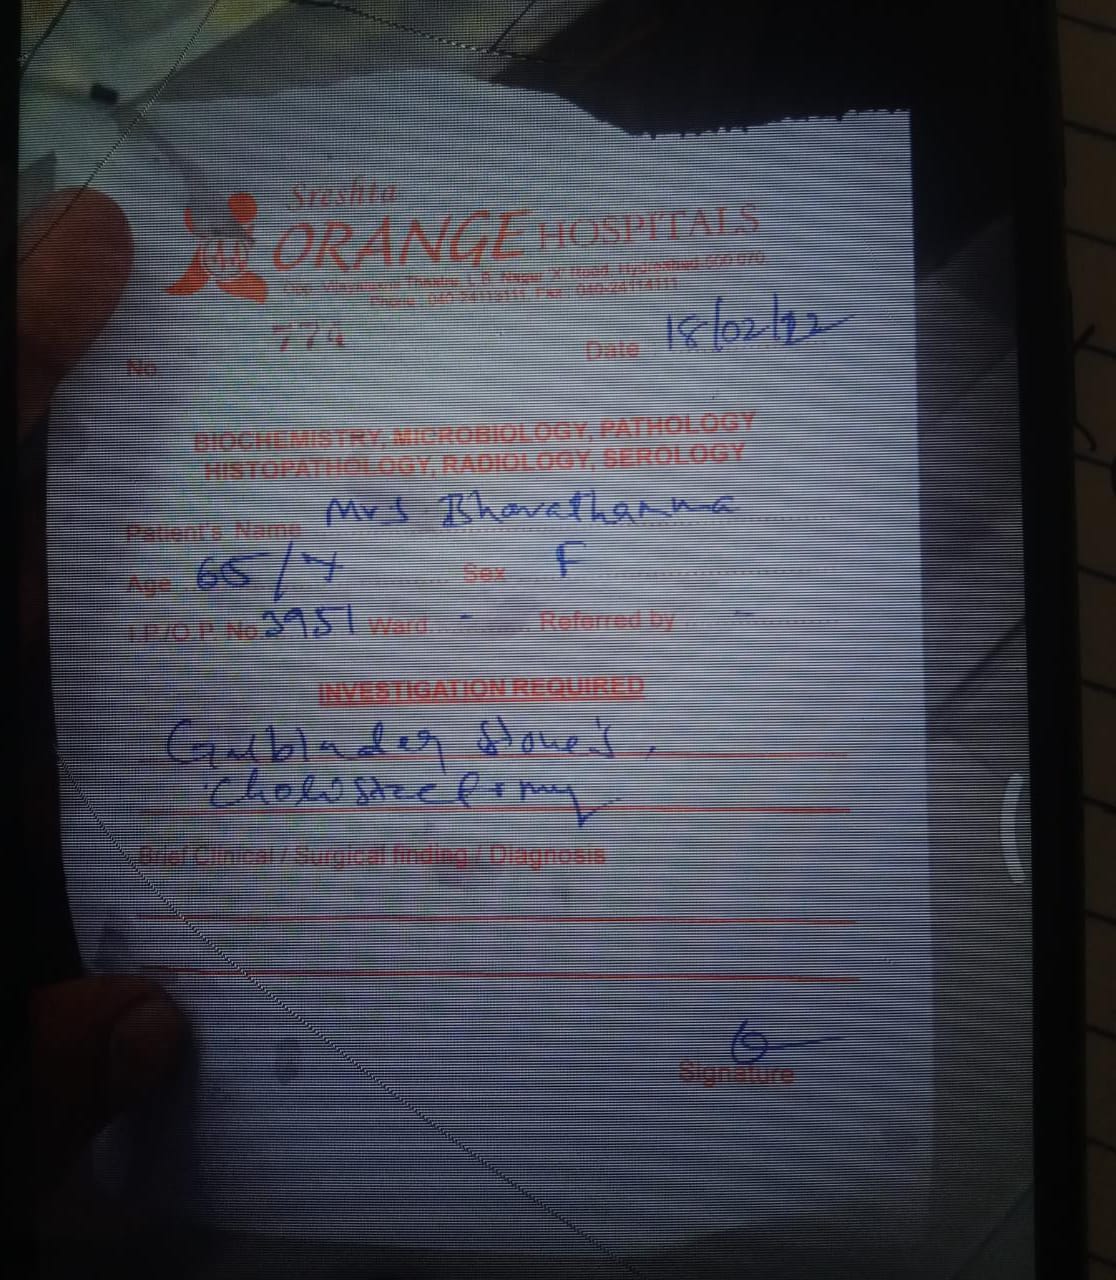 Sreshta
ORANGE HOSPITALS
Opp. Vijayalaxmi Theatre, L.B. Nagar 'X' Road, Hyderabad-500 070
Phone : 040-24113111 Fax : 040-24114111
774
No. Date 18/02/22
BIOCHEMISTRY, MICROBIOLOGY, PATHOLOGY
HISTOPATHOLOGY, RADIOLOGY, SEROLOGY
Patient's Name Mrs Bharathamma
Age 65/Y Sex F
I.P./O.P. No. 3951 Ward - Referred by -
INVESTIGATION REQUIRED
Gulblader Stone's,
Cholistectomy
Brief Clinical / Surgical finding / Diagnosis
Signature